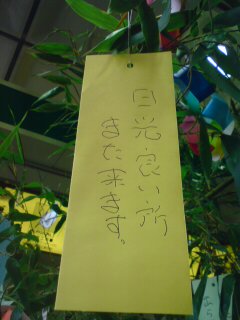 日光良い所
また来ます。